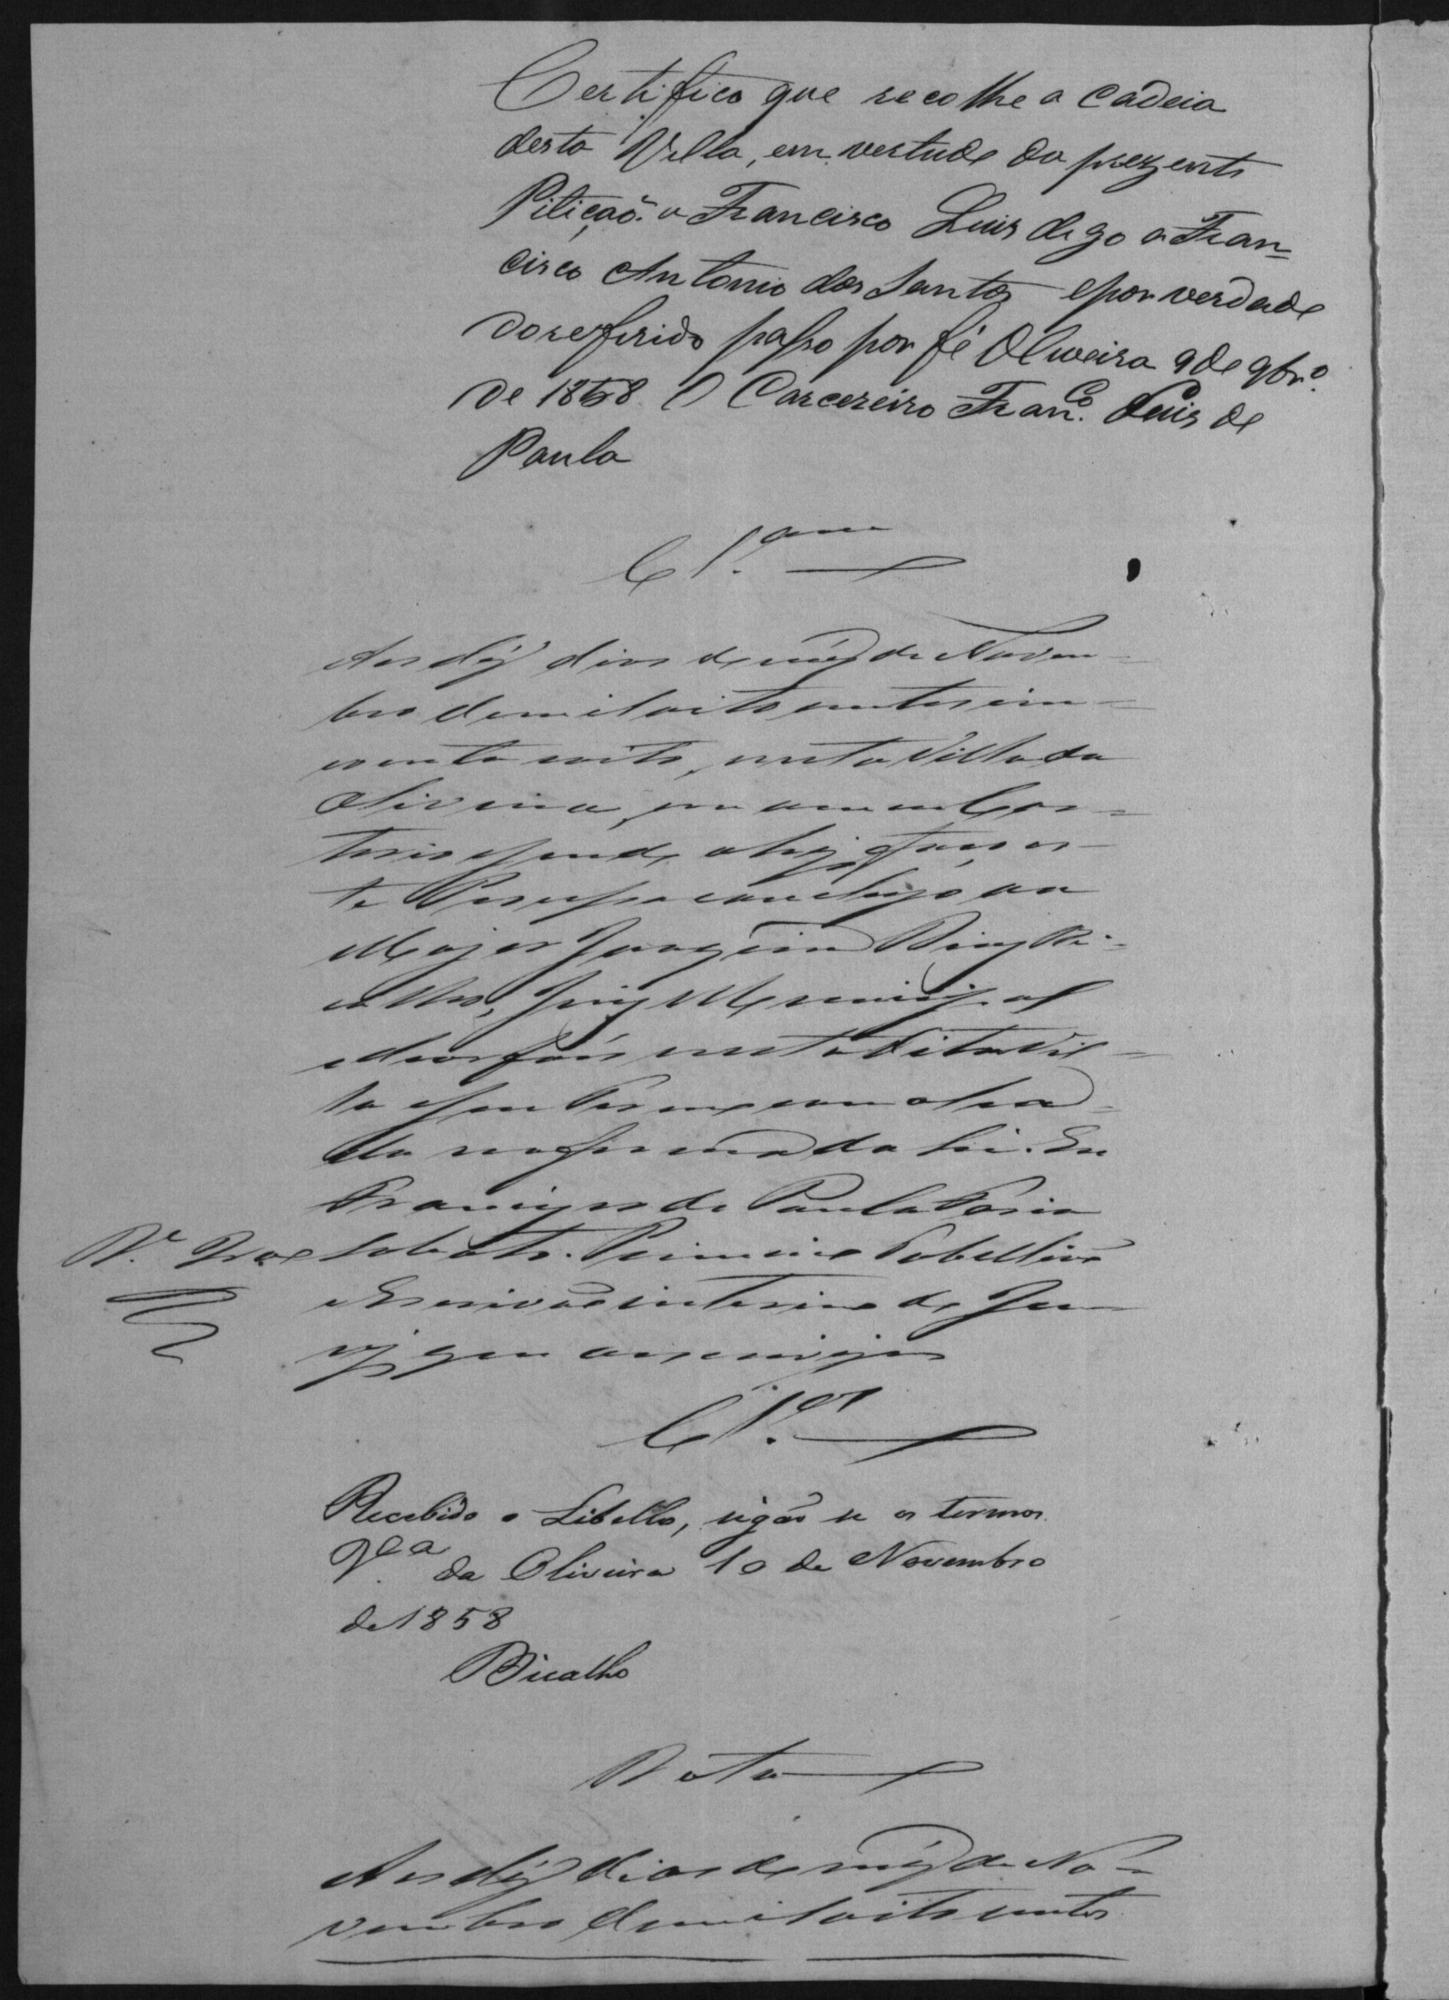 Certifico que recolhe a Cadeia
desta Villa, em vertude da prezente
Pitição. a Francisco Luis digo a Fran=
cisco Antonio dos Santos e por verdade
do referido passo por fé Oliveira 9 de 9br.o
de 1858 O Carcereiro Fran.co Luis de
Paula
Cl.am
Aos dez dias do mez de Novem=
bro de mil oito centos cin=
coenta e oito, nesta Villa da
Oliveira, em o meu Car=
torio e sendo ahi, faço es=
te Processo concluzo ao
Major Joaquim Ruiz Bi=
calho, Juiz Municipal
e de orfãos nesta dita Vil=
la
da na forma da Lei. Eu
Francisco de Paula Faria
Lobato. Primeiro Tabellião
e Escrivão interino do Ju
ry que o escrevi
Cl.os
Recebido o Libello, sigão se os termos.
V.a da Oliveira 10 de Novembro
de 1858
Bicalho
Data
Aos dez dias do mez de No=
vembro de mil oito centos